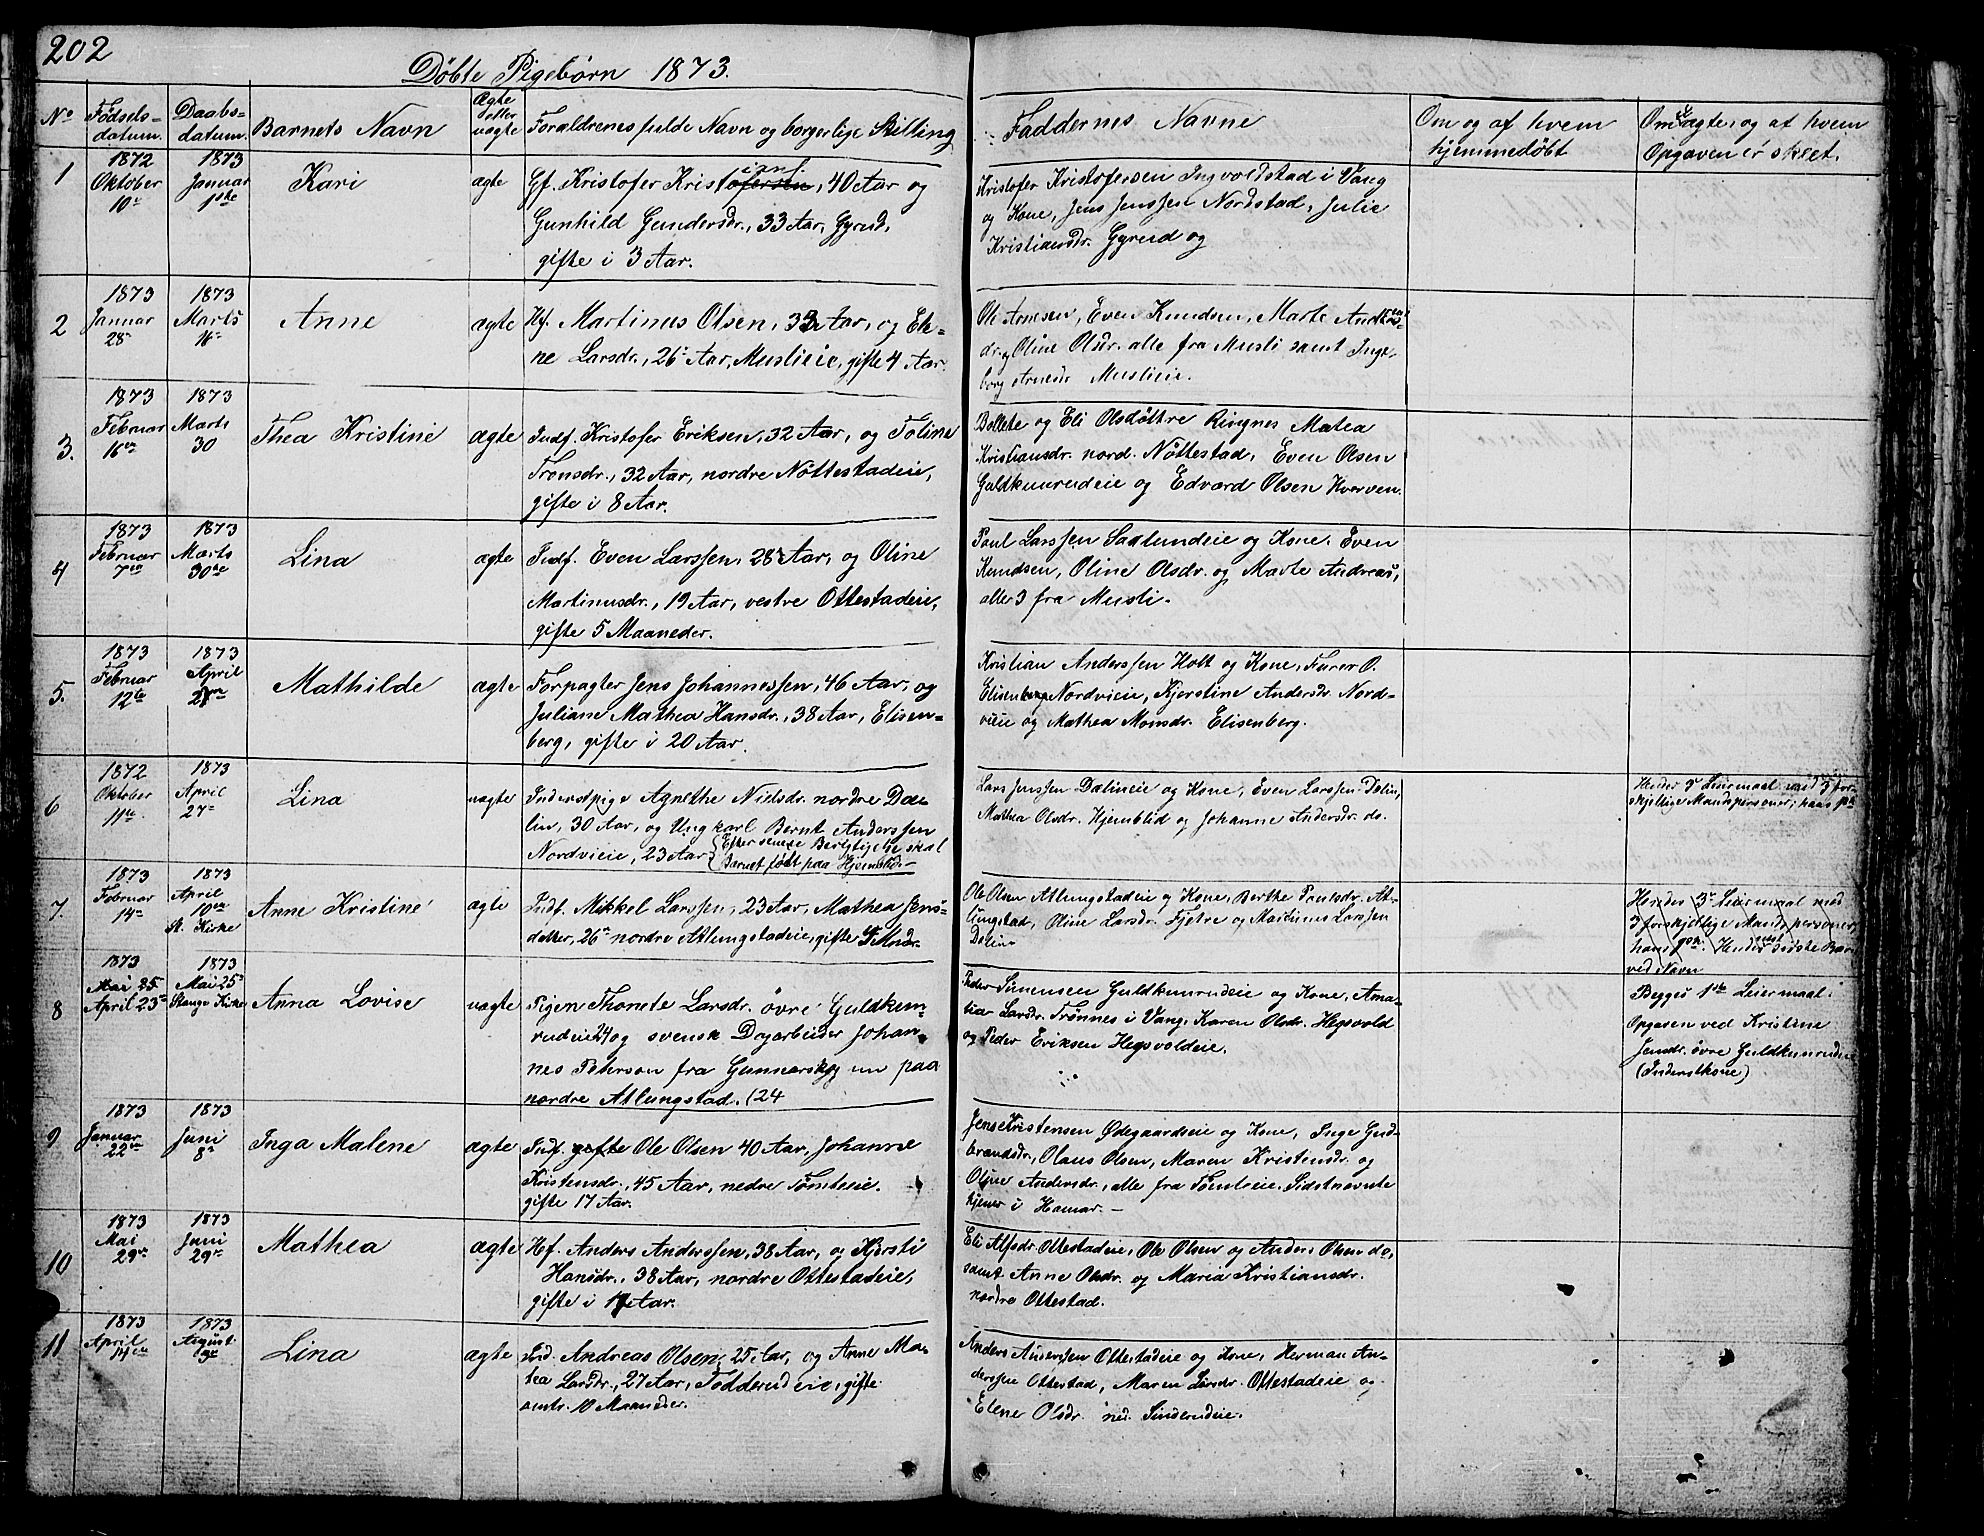 202
Døbte Pigebørn 1873.
No
Fødsels-
datum.
Daabs-
datum.
Barnets Navn
Ægte
eller
uægte
Forældrenes fulde Navn og borgerlige Stilling
Faddernes Navne
Om og af hvem
hjemmedøbt
Om uægte, og at hvem
Opgaven er skeet.
1
1872
Oktober
10de
1873
Januar
1ste
Kari
ægte
Gf. Kristofer Kristofersen, 40 Aar og
ians.
Gunhild Gundersdr., 33 Aar, Gyrud,
gifte i 3 Aar.
Kristofer Kristofersen Ingvoldstad i Vang
og Kone, Jens Jenssen Nordstad, Julie
Kristiansdr. Gyrud og
2
1873
Januar
28de
1873
Marts
16de
Anne
ægte
Hf. Martinus Olsen, 33 Aar, og Ele-
ne Larsdr., 26 Aar, Muslieie, gifte 4 Aar.
Ole Arnesen, Even Knudsen, Marte Andreas-
dr. og Oline Olsdr. alle fra Musli samt Inge-
borg Arnesdr Muslieie.
3.
1873
Februar
16de
1873
Marts
30
Thea Kristine
ægte
Indf. Kristofer Eriksen, 32 Aar, og Toline
Tronsdr., 32 Aar, nordre Nøttestadeie,
gifte i 8 Aar.
Bollete og Eli Olsdøttre Ringnes Matea
Kristiansdr. nord. Nøttestad, Even Olsen
Guldkunrudeie og Edvard Olsen Hverven.
4
1873
Februar
7de
1873
Marts
30te
Lina
ægte
Indf. Even Larssen, 28 Aar, og Oline
Martinusdr., 19 Aar, vestre Ottestadeie,
gifte 5 Maaneder.
Paul Larssen Saxlundeie og Kone, Even
Knudsen, Oline Olsdr. og Marte Andreas,
alle 3 fra Musli.
5.
1873
Februar
12te
1873
April
27de
Mathilde
ægte
Forpagter Jens Johannessen, 46 Aar, og
Juliane Mathea Hansdr., 38 Aar, Elisen-
berg, gifte i 20 Aar.
Kristian Anderssen Holt og Kone, Furer O.
Elisenberg Nordvieie, Kjerstine Andersdr. Nord-
vieie og Mathea Monsdr. Elisenberg.
6
1872
Oktober
11te
1873
April
27de
Lina
uægte
Inderstpige Agnethe Nielsdr. nordre Dæ-
lin, 30 Aar, og Ungkarl Bernt Anderssen
Nordvieie, 23 Aar.
(Efter senere Berigtigelse skal
Barnet født paa Hjemblid. -
Lars Jenssen Dælineie og Kone, Even Larssen Dælin,
Mathea Olsdr. Hjemblid og Johanne Andersdr. do.
Hendes 3de Leiermaal med 3 for-
skjellige Mandspersoner, hans 1ste
7.
1873
Februar
14de
1873
April
10de
St. Kirke
Anne Kristine
ægte
Indf. Mikkel Larssen, 23 Aar, Mathea Jens-
datter, 26 nordre Atlungstadeie, gifte 4 Mndr.
Ole Olsen Atlungstadeie og Kone, Berthe Paulsdr. At-
lungstad, Oline Larsdr. Fjetre og Mathinus Larssen
Dælin
Hendes 3de Leiermaal med
3 forskjellige Mandspersoner,
hans 1ste. Hendes sidste Barn
ved Navn
8
1873
Mai 25
April 23de
1873
Mai 25de
Stange Kirke
Anna Lovise
uægte
Pigen Thonete Larsdr. øvre Guldkun-
rudeie 24 og svensk Dagarbeider Johan-
nes Peterson fra Gunnarskog nu paa
nordre Atlungstad. (24
Peder Simensen Guldkunrudeie og Kone, Ama-
lia Larsdr. Trønnes i Vang, Karen Olsdr. Hegsvold
og Peder Eriksen Hegsvoldeie.
Begges 1ste Leiermaal.
Opgaven ved Kristine
Jensdr. øvre Guldkunrudeie
(Inderstkone)
9
1873
Januar
22de
1873
Juni
8de
Inga Malene
ægte
Indf. gifte Ole Olsen 40 Aar, Johanne
Kristensdr., 45 Aar, nedre Tømteeie.
gifte 17 Aar.
Jens Kristensen Ødegaardseie og Kone, Inge Gud-
brandsdr., Olaus Olsen, Maren Kristensdr. og
Oline Andersdr., alle fra Tømteeie. Sidstnævnte
tjener i Hamar. -
10
1873
Mai
29de
1873
Juni
29de
Mathea
ægte
Hf. Anders Anderssen, 38 Aar, og Kjersti
Hansdr., 38 Aar, nordre Ottestadeie,
gifte i 17 Aar.
Eli Alfsdr Ottestadeie, Ole Olsen og Anders Olsen do,
samt Anne Olsdr. og Maria Kristiansdr.
nordre Ottestad.
11
1873
April
14de
1873
August
3de
Lina
ægte
Ind. Andreas Olsen, 25 Aar, og Anne Ma-
tea Larsdr., 27 Aar, Fodderudeie, gifte
omtr. 10 Maaneder.
Anders Anderssen Ottestadeie og Kone, Herman An-
derssen Ottestad, Maren Larsdr. Ottestadeie og
Elene Olsdr. ned. Sinderudeie.